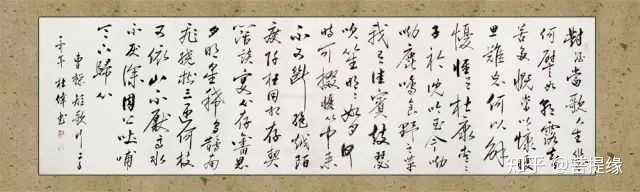 對酒當歌人生幾
何譬如朝露去
苦多慨當以慷
難忘何以解
憂惟有杜康
子沈吟至今呦
呦鹿鳴食野之苹
我有嘉賓鼓瑟
吹笙明明如月何
時可掇憂從中來
不可斷絕越陌
度阡枉用相存契
闊談讌心念舊恩
月明星稀烏鵲南
飛繞樹三匝何枝
可依山不厭高水
不厭深周公吐哺
天下歸心
曹操短歌行
午 杜偉書
知乎 @菩提缘